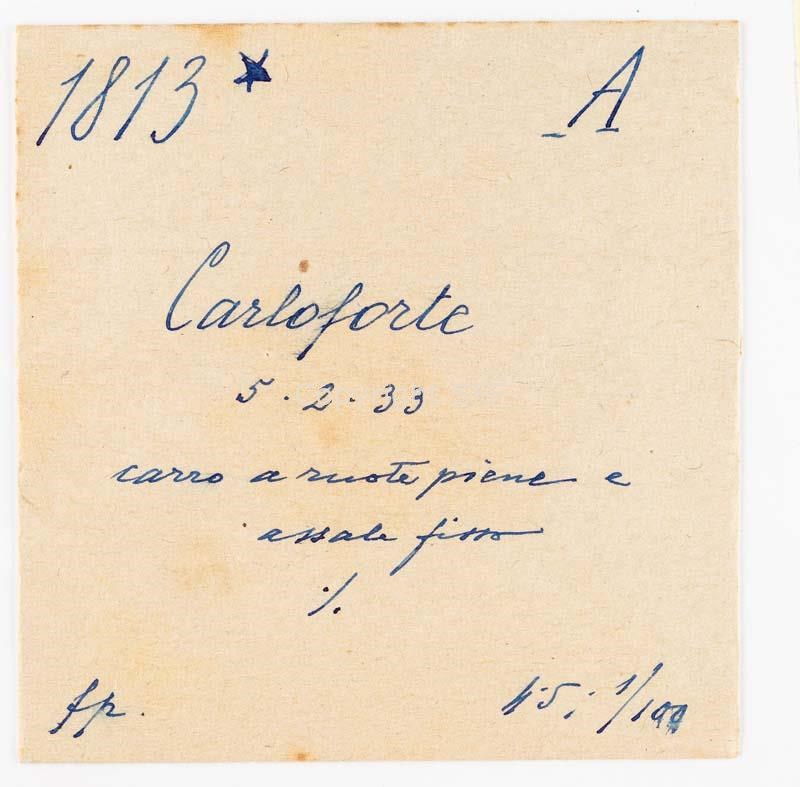 1813 ★ A
Carloforte
5.2.33
carro a ruote piene e
assale fisso
./.
fp.
4.5; 1/100